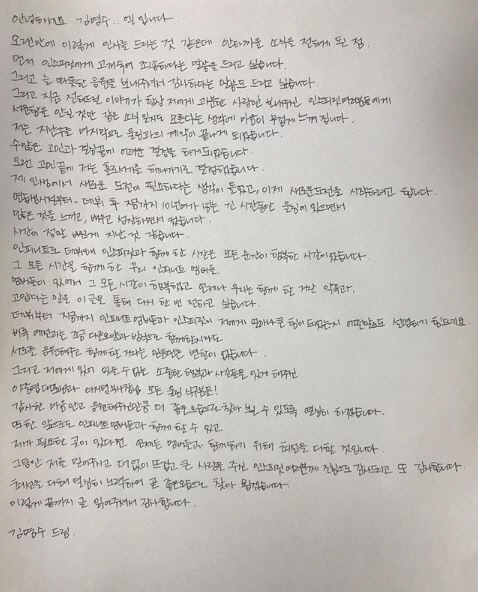 안녕하세요 김명수.. 엘 입니다.
오랜만에 이렇게 인사를 드리는 것 같은데 안타까운 소식을 전하게 된 점.
먼저 인스피릿에게 고개숙여 죄송하다는 말씀을 드리고 싶습니다.
그리고 늘 따뜻한 응원을 보내주셔서 감사하다는 말씀도 드리고 싶습니다.
그리고 지금 전해드릴 이야기가 항상 저에게 과분한 사랑만 보내주신 인스피릿여러분들에게
서운함을 안길 것만 같은 소식 일지도 모른다는 생각에 마음이 무겁게 느껴 집니다.
저는 지난주를 마지막으로 울림과의 계약이 끝나게 되었습니다.
수많은 고민과 결정끝에 어려운 결정을 하게되었습니다.
오랜 고민끝에 저는 홀로서기를 해나가기로 결정했습니다.
제 인생에서 새로운 도전이 필요하다는 생각이 들었고, 이제 새로운도전을 시작하려고 합니다.
연습생시절부터 - 데뷔 후 지금까지 10년여가 넘는 긴 시간동안 울림에 있으면서
많은 것을 느끼고, 배우고 성장하면서 왔습니다.
시간이 정말 빠르게 지난 것 같습니다.
인피니트로 데뷔해 인스피릿과 함께 한 시간은 모든 순간이 행복한 시간이었습니다.
그 모든 시간을 함께 한 우리 인피니트 멤버들.
멤버들이 있어서 그 모든 시간이 행복했고 언제나 우리는 함께 할 거란 약속과,
고맙다는 말을 이 글을 통해 다시 한 번 전하고 싶습니다.
데뷔부터 지금까지 인피니트 멤버들과 인스피릿이 저에게 얼마나 큰 힘이 되었는지 어떤말로도 설명하기 힘드네요.
비록 예전과는 조금 다른모양과 방식으로 함께할지라도
서로를 응원해주고 함께 할 거라는 믿음만은 변함이 없습니다.
그리고 저에게 잊어 있을 수 없는 소중한 행복과 시간들을 있게 해주신
이중엽 대표님과 모든 울림 식구분들!
감사한 마음안고 응원해주신만큼 더 좋은모습으로 찾아 뵐 수 있도록 열심히 하겠습니다.
또한 앞으로도 인피니트 멤버들과 함께 할 수 있고
제가 필요한 곳이 있다면 언제든 멤버들과 함께하기 위해 최선을 다할 것입니다.
그동안 저를 믿어주시고 더없이 뜨겁고 큰 사랑을 주신 인스피릿여러분께 진심으로 감사드리고 또 감사합니다.
최선을 다해 열심히 노력하여 곧 좋은모습으로 찾아 뵙겠습니다.
이렇게 끝까지 글 읽어주셔서 감사합니다.
김명수 드림.